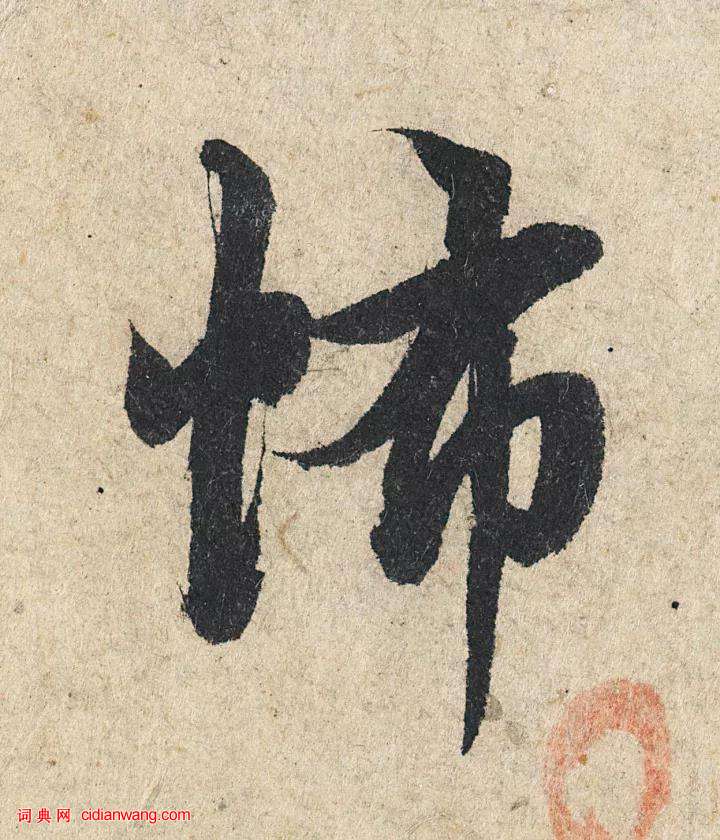 怖
词典网 cidianwang.com